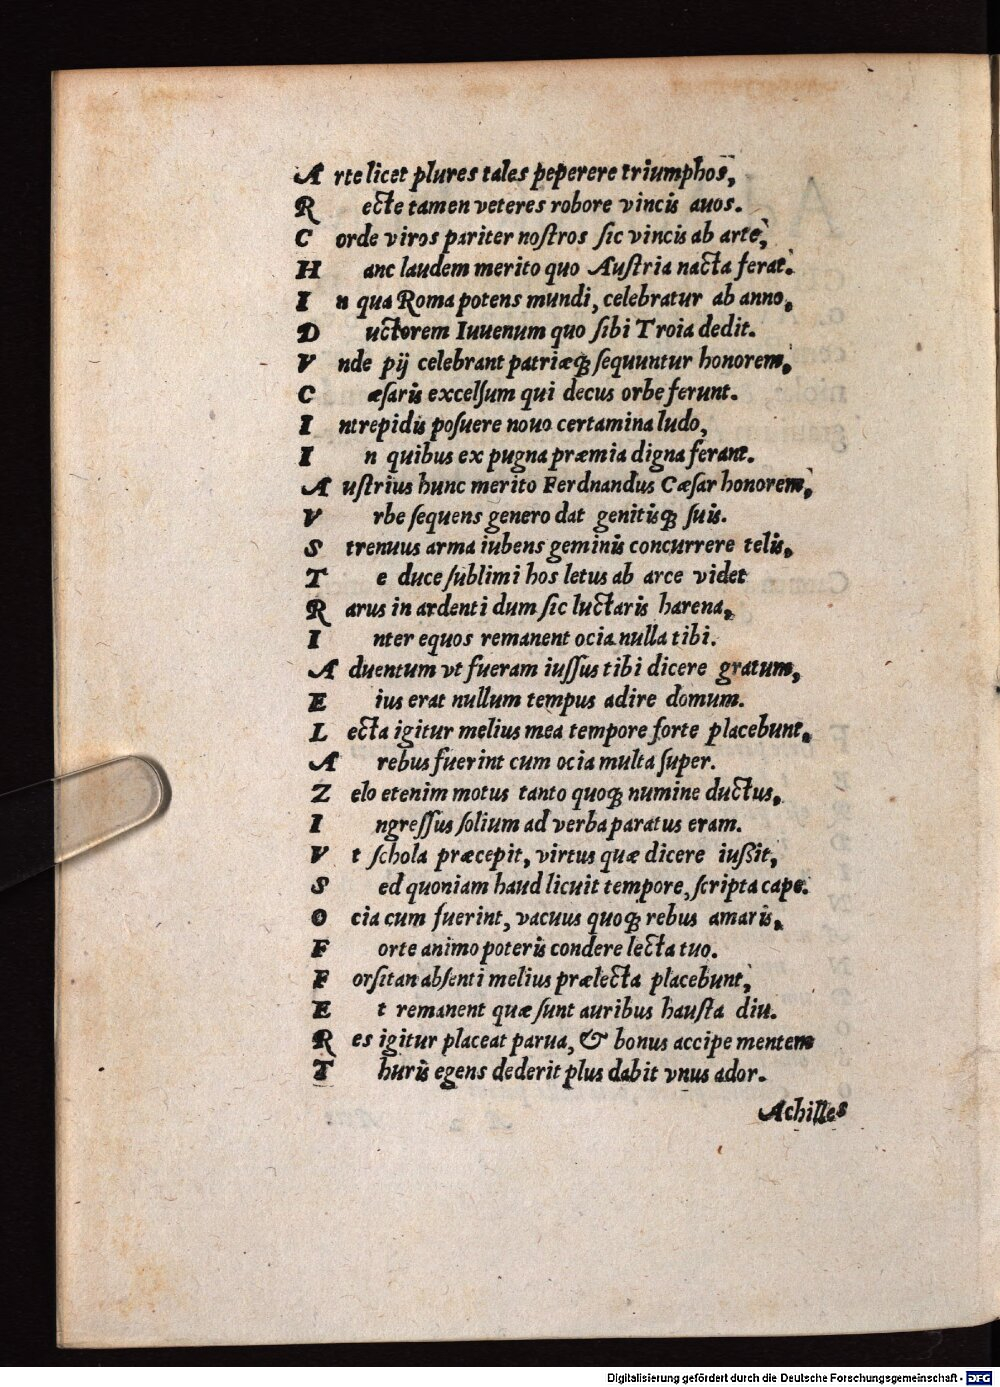 Arte licet plures tales peperere triumphos,
Recte tamen veteres robore vincis avos.
Corde viros pariter nostros sic vincis ab arte,
Hanc laudem merito quo Austria nacta ferat.
In qua Roma potens mundi, celebratur ab anno,
Ductorem Iuuenum quo sibi Troia dedit.
Vnde pij celebrant patriæq; sequuntur honorem,
Cæsaris excelsum qui decus orbe ferunt.
Intrepidis posuere nouo certamina ludo,
In quibus ex pugna præmia digna ferant.
Austrius hunc merito Ferdnandus Cæsar honorem,
Vrbe sequens genero dat genitisq; suis.
Strenuus arma iubens geminis concurrere telis,
Te duce sublimi hos letus ab arce videt
Rarus in ardenti dum sic luctaris harena,
Inter equos remanent ocia nulla tibi.
Aduentum vt fueram iussus tibi dicere gratum,
Eius erat nullum tempus adire domum.
Lecta igitur melius mea tempore forte placebunt,
A rebus fuerint cum ocia multa super.
Zelo etenim motus tanto quoq; numine ductus,
Ingressus solium ad verba paratus eram.
Vt schola præcepit, virtus quæ dicere iußit,
Sed quoniam haud licuit tempore, scripta cape.
Ocia cum fuerint, vacuus quoq; rebus amaris,
Forte animo poteris condere lecta tuo.
Forsitan absenti melius prælecta placebunt,
Et remanent quæ sunt auribus hausta diu.
Res igitur placeat parua, & bonus accipe mentem
Thuris egens dederit plus dabit vnus ador.
Achilles
Digitalisierung gefördert durch die Deutsche Forschungsgemeinschaft - DFG